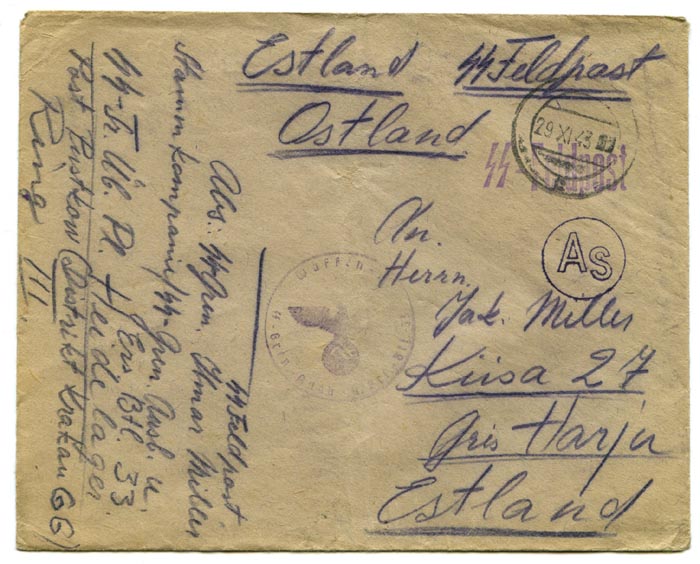 Estland SS Feldpost
Ostland
29.XI.43
SS Feldpost
As
An.
Herrn.
Jak. Miller
Kiisa 27
Harju
Estland
WAFFEN-
SS Feldpost
Abs.: SS-Gren. Elmar Miller
Stammkompanie/SS-Gren. Ausb. u.
Ers. Btl. 33
SS-Tr. Üb. Pl. Heidelager
Post Pustkow (Distrikt Krakau GG)
Ring III